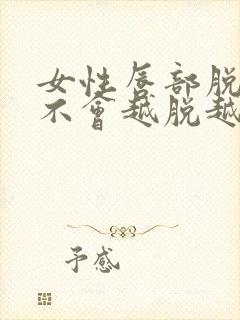 女性唇部脱
不會越脱越
予感